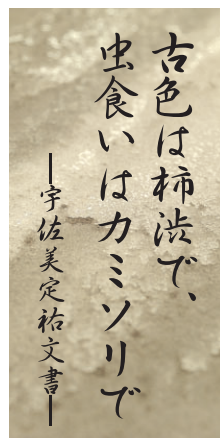 古色は柿渋で、
虫食いはカミソリで
宇佐美定祐文書